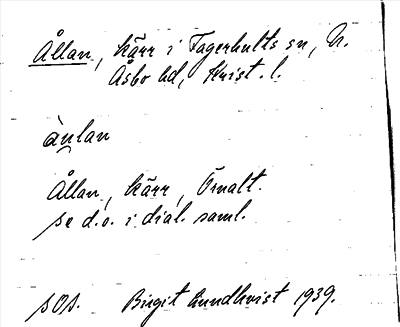 Ållan, kärr i Fagerhults sn, N.
Åsbo hd, Krist. l.
àu̯lan
Ållan, kärr, Örnalt.
se d.o. i dial. saml.
SOA. Birgit Lundkvist 1939.